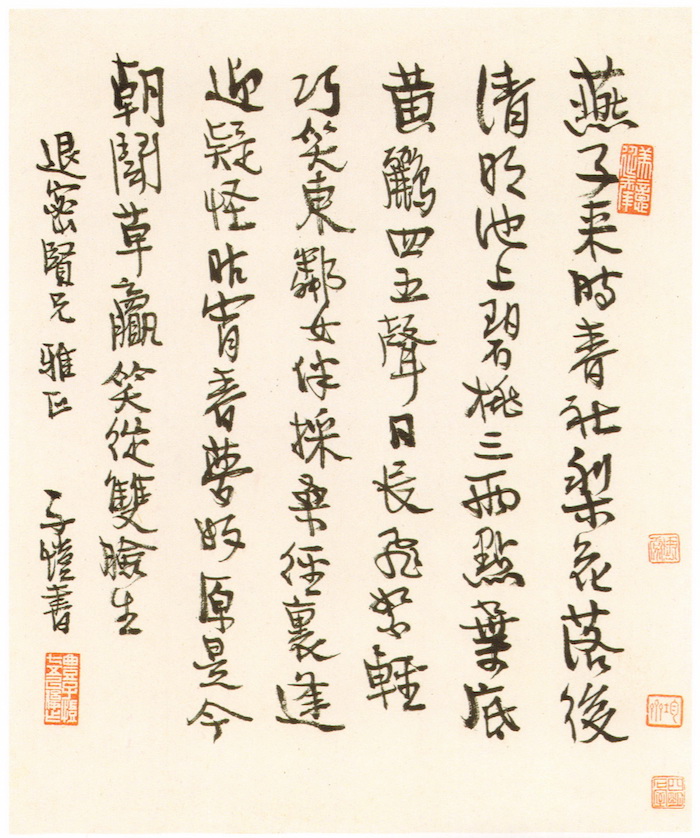 燕子来時春社梨花落後
清明池上碧桃三兩點葉底
黄鸝四五聲日長飛絮輕
巧笑東鄰女伴採桑徑裏逢
迎疑怪昨宵春夢好原是今
朝鬪草贏笑從雙臉生
退密賢兄雅正 子愷書